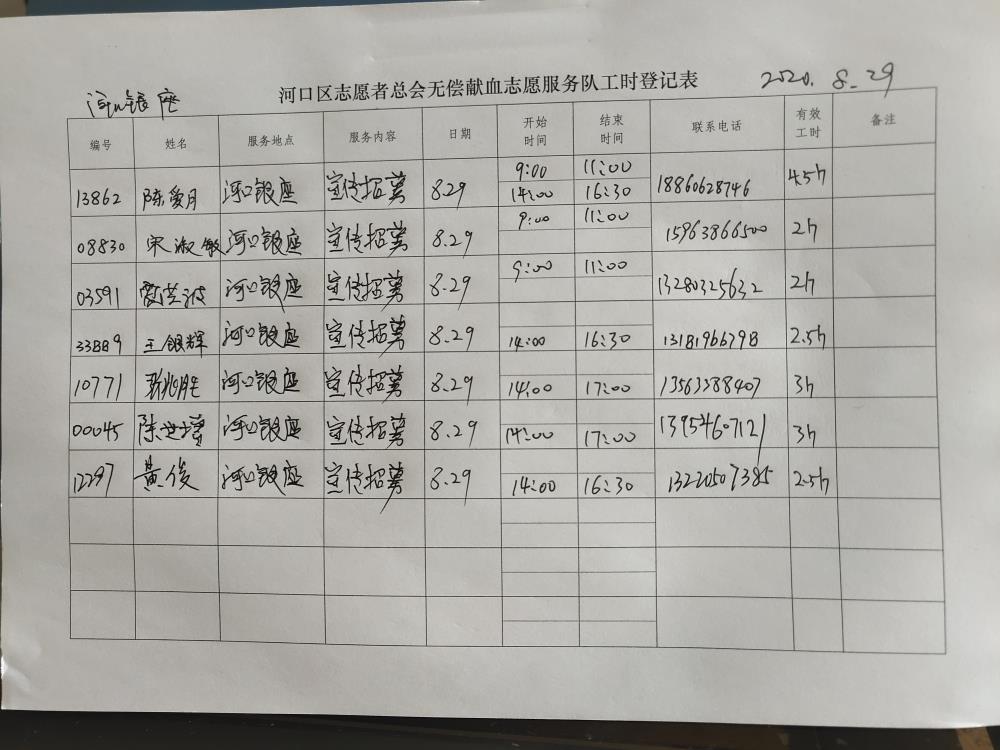 河口银座 河口区志愿者总会无偿献血志愿服务队工时登记表 2020. 8. 29
编号 姓名 服务地点 服务内容 日期 开始时间 结束时间 联系电话 有效工时 备注
13862 陈爱月 河口银座 宣传招募 8.29 9:00 11:00 18860628746 4.5h
14:00 16:30
08830 宋淑敏 河口银座 宣传招募 8.29 9:00 11:00 15963866500 2h
03591 河口银座 宣传招募 8.29 9:00 11:00 13280325632 2h
33889 王银辉 河口银座 宣传招募 8.29 14:00 16:30 13181966798 2.5h
10771 河口银座 宣传招募 8.29 14:00 17:00 13563388407 3h
00045 河口银座 宣传招募 8.29 14:00 17:00 13954607121 3h
12297 黄俊 河口银座 宣传招募 8.29 14:00 16:30 13220507385 2.5h